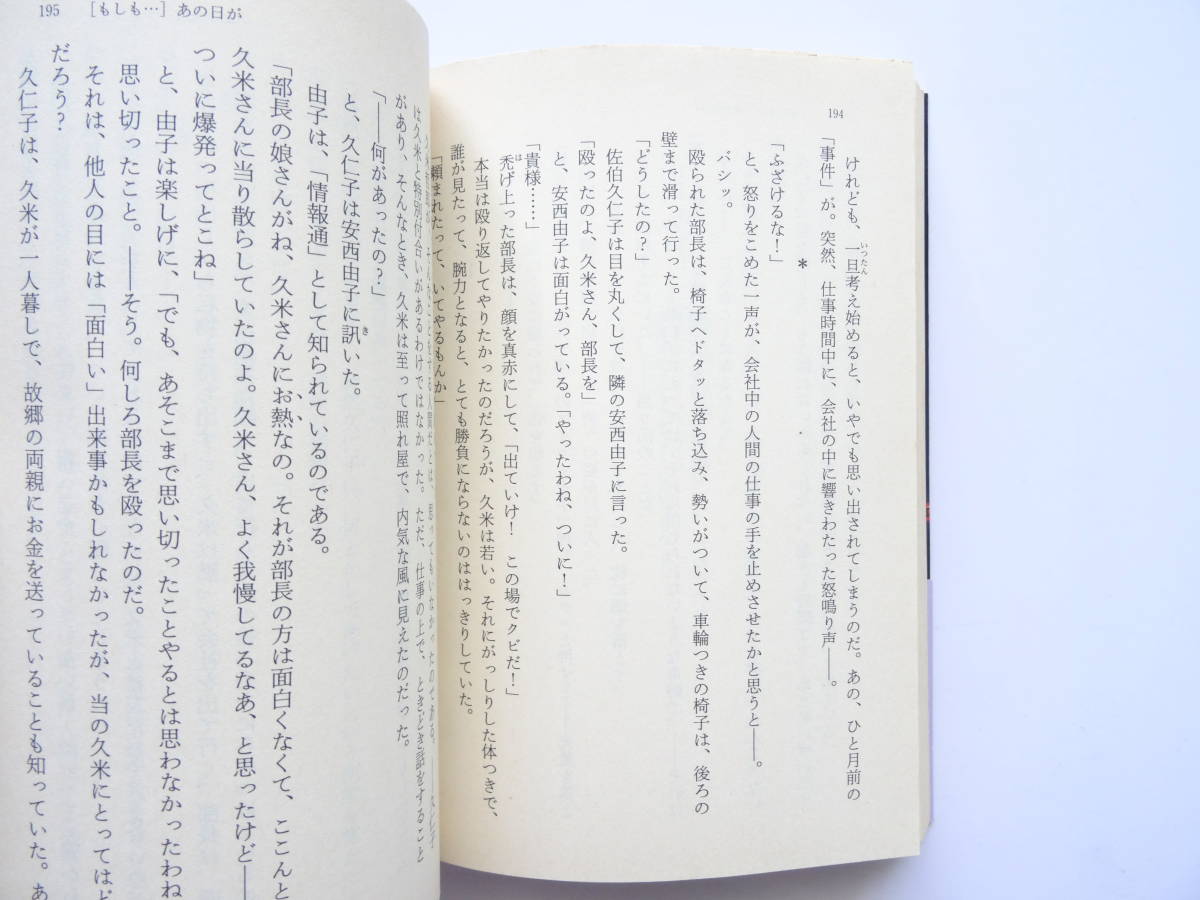 194
けれども、一旦考え始めると、いやでも思い出されてしまうのだ。あの、ひと月前の
「事件」が。突然、仕事時間中に、会社の中に響きわたった怒鳴り声――。
*
「ふざけるな!」
と、怒りをこめた一声が、会社中の人間の仕事の手を止めさせたかと思うと――。
バシッ。
殴られた部長は、椅子へドタッと落ち込み、勢いがついて、車輪つきの椅子は、後ろの
壁まで滑って行った。
「どうしたの?」
佐伯久仁子は目を丸くして、隣の安西由子に言った。
「殴ったのよ、久米さん、部長を」
と、安西由子は面白がっている。「やったわね、ついに!」
「貴様……」
禿げ上った部長は、顔を真赤にして、「出ていけ! この場でクビだ!」
本当は殴り返してやりたかったのだろうが、久米は若い。それにがっしりした体つきで、
誰が見たって、腕力となると、とても勝負にならないのははっきりしていた。
「頼まれたって、いてやるもんか」
195 [もしも…]あの日が
久仁子
は久米と特別付合いがあるわけではなかった。ただ、仕事の上で、ときどき話をすること
があり、そんなとき、久米は至って照れ屋で、内気な風に見えたのだった。
「――何があったの?」
と、久仁子は安西由子に訊いた。
由子は、「情報通」として知られているのである。
「部長の娘さんがね、久米さんにお熱なの。それが部長の方は面白くなくて、ここんと
久米さんに当り散らしていたのよ。久米さん、よく我慢してるなあ、と思ったけど――
ついに爆発ってとこね」
と、由子は楽しげに、「でも、あそこまで思い切ったことやるとは思わなかったわね
思い切ったこと。――そう。何しろ部長を殴ったのだ。
それは、他人の目には「面白い」出来事かもしれなかったが、当の久米にとってはど
だろう?
久仁子は、久米が一人暮しで、故郷の両親にお金を送っていることも知っていた。あ